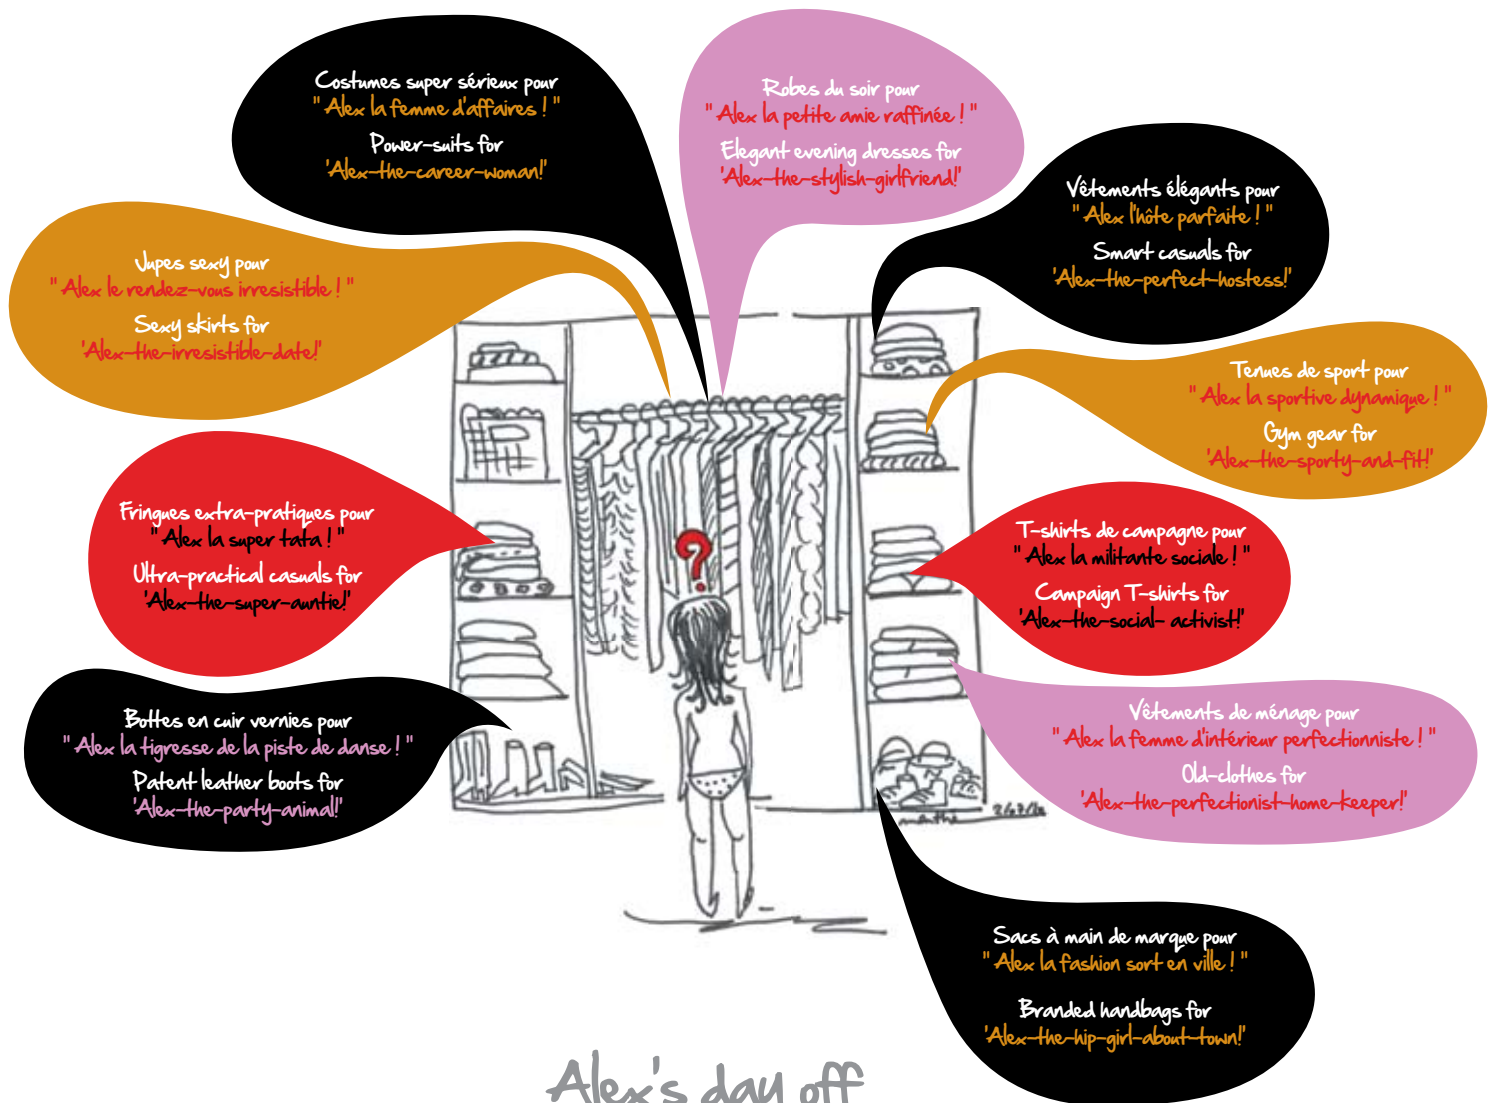 Costumes super sérieux pour
" Alex la femme d'affaires ! "
Power-suits for
'Alex-the-career-woman!'
Robes du soir pour
" Alex la petite amie raffinée ! "
Elegant evening dresses for
'Alex-the-stylish-girlfriend!'
Vêtements élégants pour
" Alex l'hôte parfaite ! "
Smart casuals for
'Alex-the-perfect-hostess!'
Jupes sexy pour
" Alex le rendez-vous irresistible ! "
Sexy skirts for
'Alex-the-irresistible-date!'
Tenues de sport pour
" Alex la sportive dynamique ! "
Gym gear for
'Alex-the-sporty-and-fit!'
Fringues extra-pratiques pour
" Alex la super tata ! "
Ultra-practical casuals for
'Alex-the-super-auntie!'
?
T-shirts de campagne pour
" Alex la militante sociale ! "
Campaign T-shirts for
'Alex-the-social- activist!'
Bottes en cuir vernies pour
" Alex la tigresse de la piste de danse ! "
Patent leather boots for
'Alex-the-party-animal!'
Vêtements de ménage pour
" Alex la femme d'intérieur perfectionniste ! "
Old-clothes for
'Alex-the-perfectionist-home-keeper!'
Sacs à main de marque pour
" Alex la fashion sort en ville ! "
Branded handbags for
'Alex-the-hip-girl-about-town!'
Alex's day off